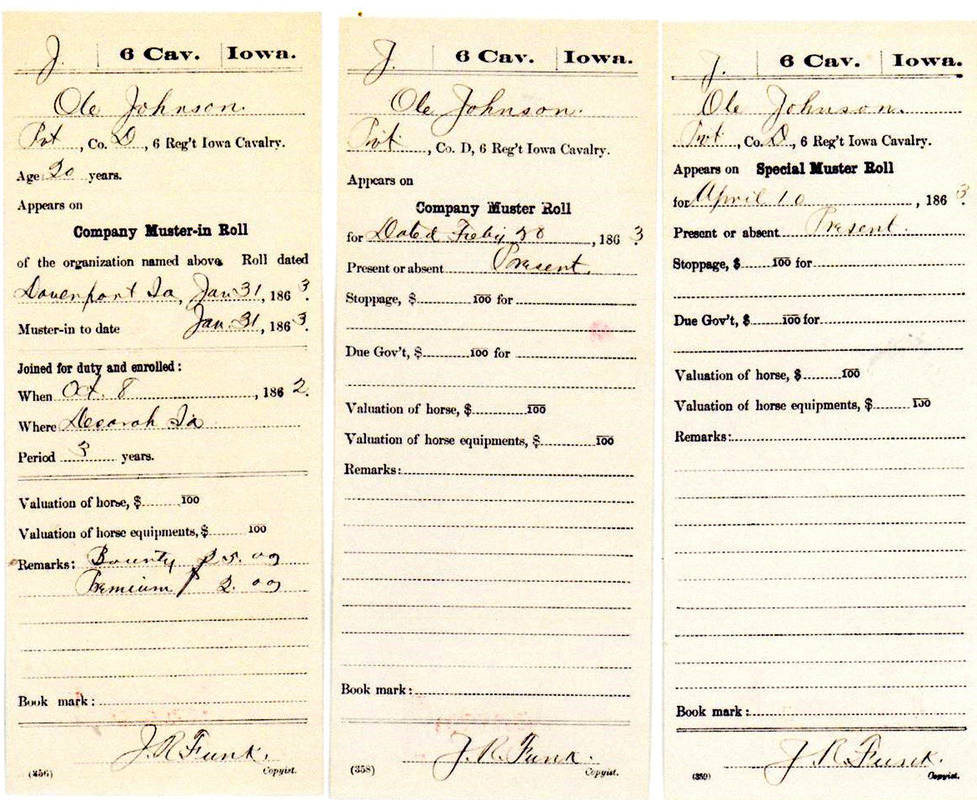 J. 6 Cav. Iowa.
Ole Johnson.
Pvt, Co. D, 6 Reg't Iowa Cavalry.
Age 20 years.
Appears on
Company Muster-in Roll
of the organization named above. Roll dated
Davenport Ia, Jan 31, 1863.
Muster-in to date Jan. 31, 1863.
Joined for duty and enrolled:
When Oct. 8, 1862.
Where Decorah Ia
Period 3 years.
Valuation of horse, $ 100
Valuation of horse equipments, $ 100
Remarks: Bounty 25.00
Premium $ 2.00
Book mark:
J. R. Funk.
(356) Copyist.
J. 6 Cav. Iowa.
Ole Johnson.
Pvt, Co. D, 6 Reg't Iowa Cavalry.
Appears on
Company Muster Roll
for Dated Feby 28, 1863
Present or absent Present.
Stoppage, $ 100 for
Due Gov't, $ 100 for
Valuation of horse, $ 100
Valuation of horse equipments, $ 100
Remarks:
Book mark:
J. R. Funk.
(358) Copyist.
J. 6 Cav. Iowa.
Ole Johnson.
Pvt, Co. D, 6 Reg't Iowa Cavalry.
Appears on Special Muster Roll
for April 10, 1863.
Present or absent Present.
Stoppage, $ 100 for
Due Gov't, $ 100 for
Valuation of horse, $ 100
Valuation of horse equipments, $ 100
Remarks:
Book mark:
J. R. Funk.
(359) Copyist.